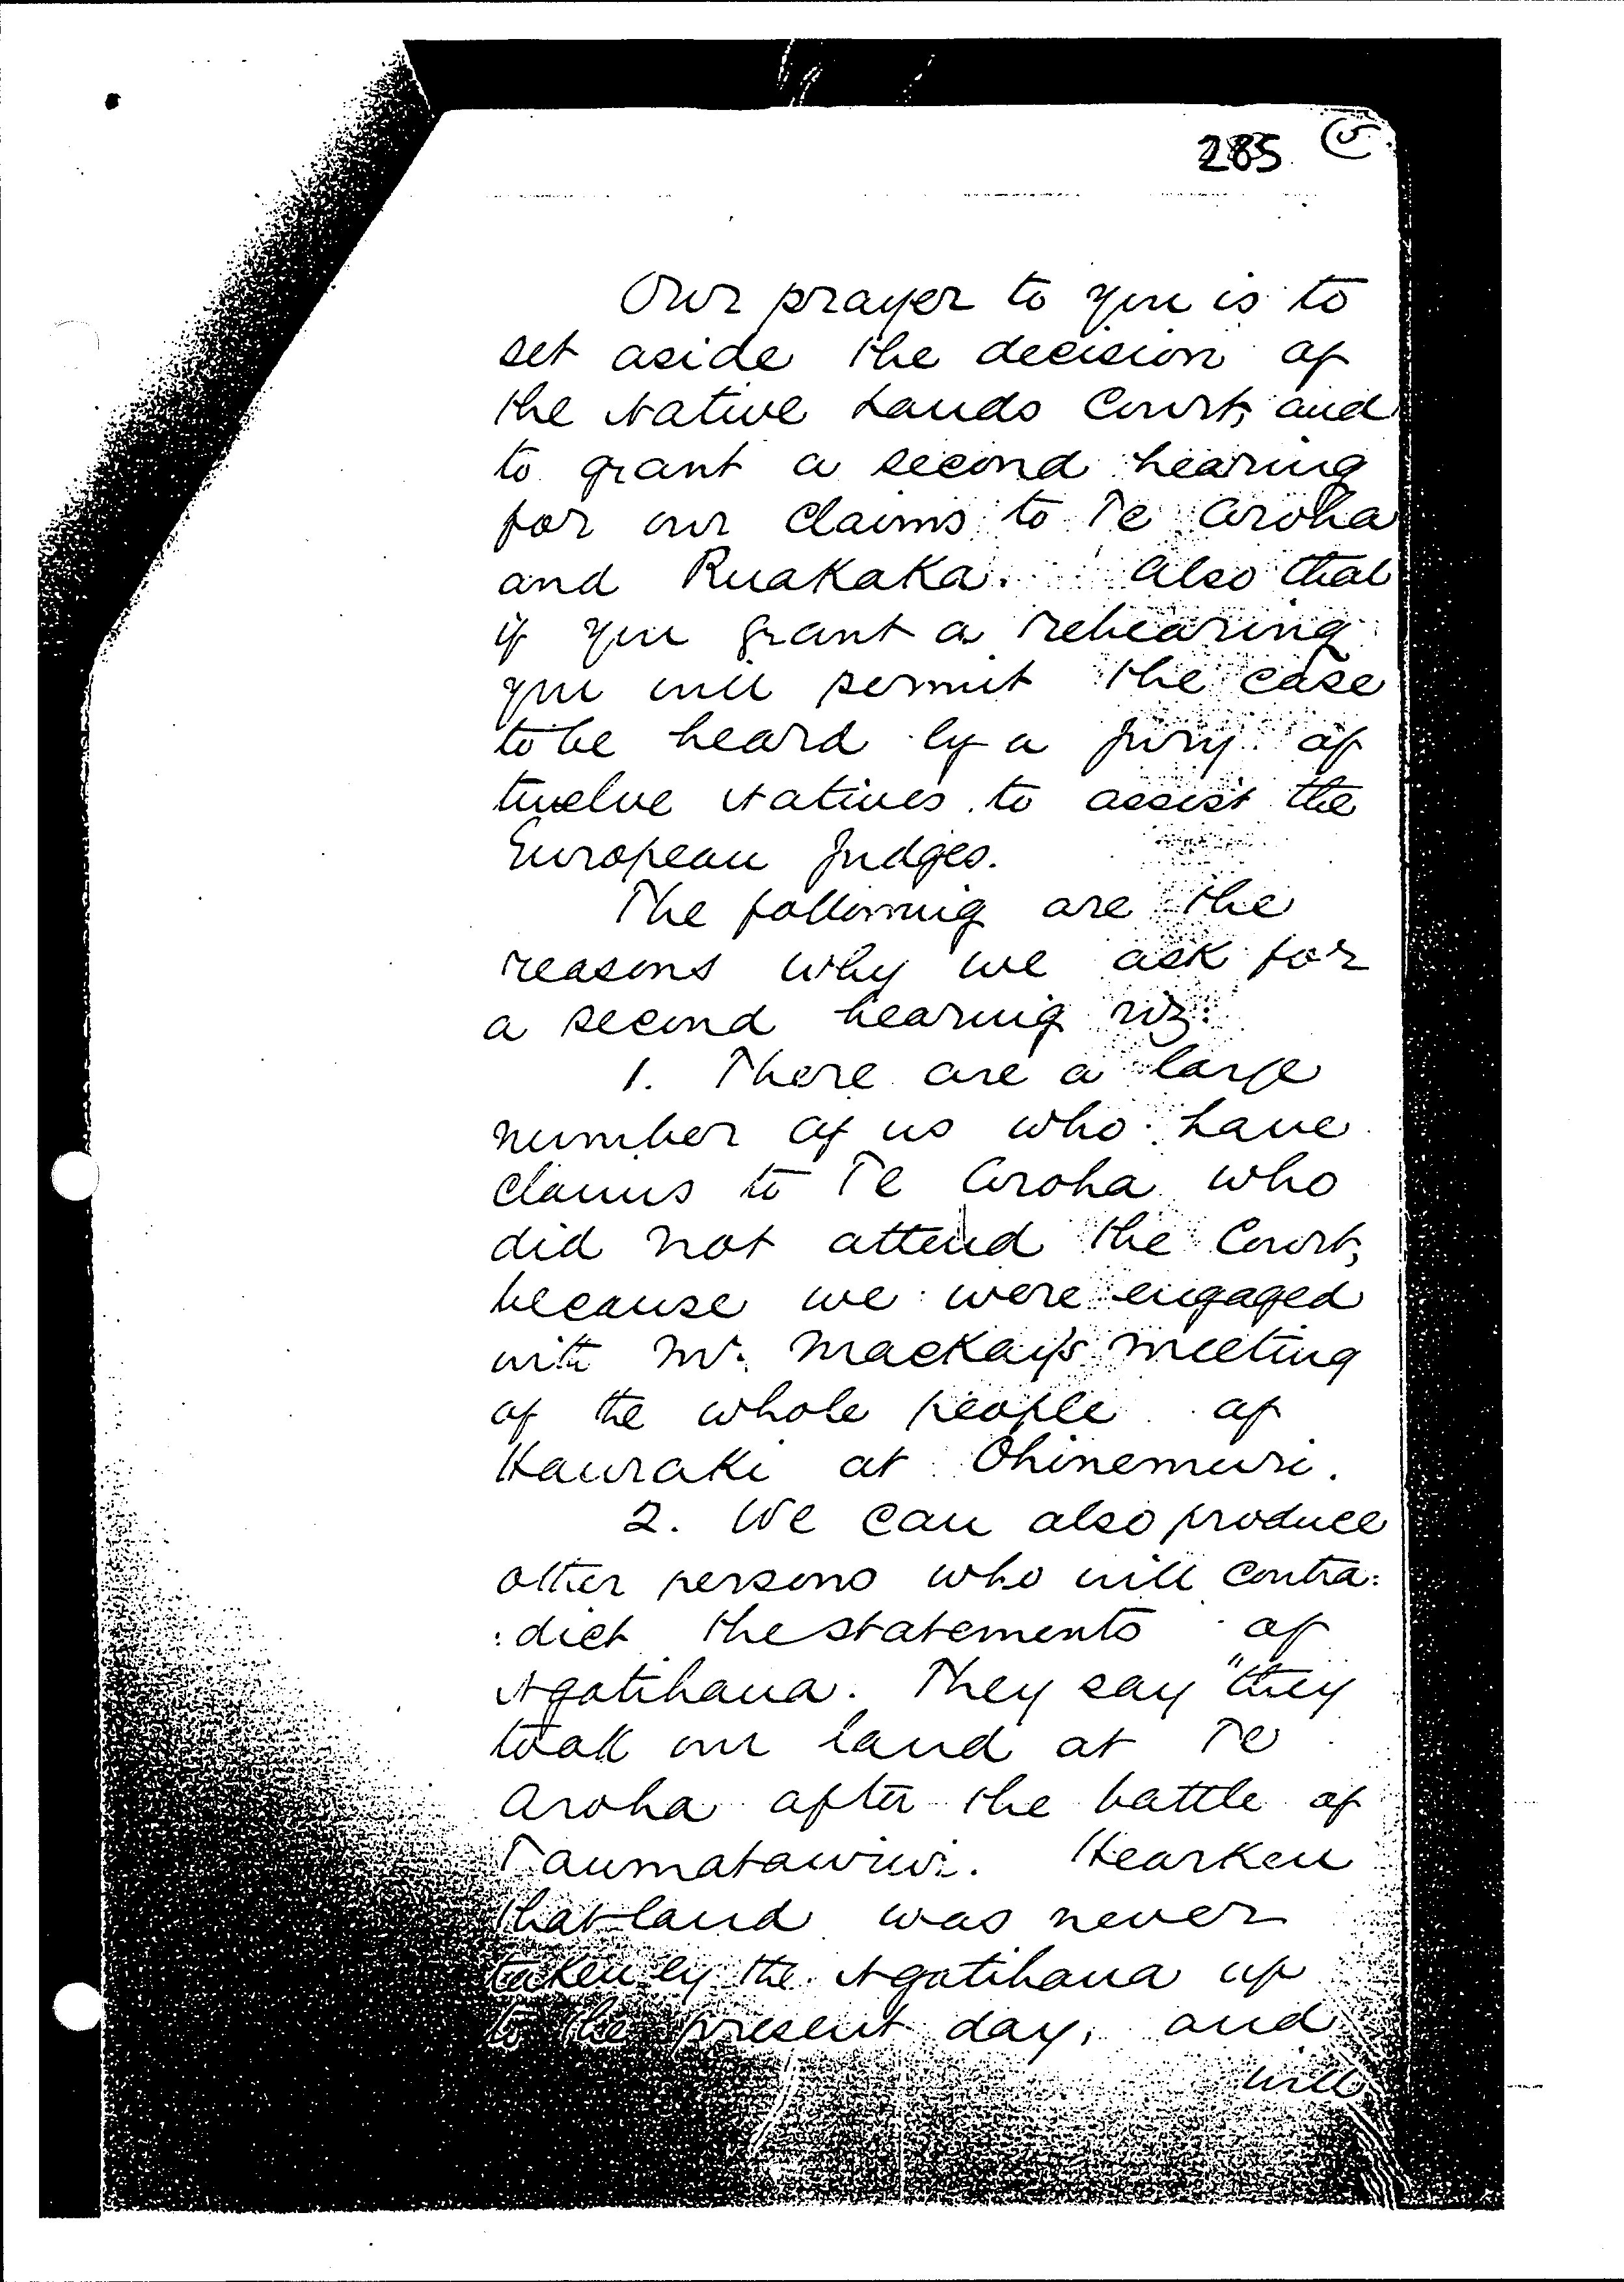 285 5
Our prayer to you is to
set aside the decision of
the Native Lands Court, and
to grant a second hearing
for our claims to Te Aroha
and Ruakaka. Also that
if you grant a rehearing
you will permit the case
to be heard by a jury of
twelve Natives to assist the
European Judges.
The following are the
reasons why we ask for
a second hearing viz:
1. There are a large
number of us who have
claims to Te Aroha who
did not attend the Court,
because we were engaged
with Mr. Mackay's meeting
of the whole people of
Hauraki at Ohinemuri.
2. We can also produce
other persons who will contra:
:dict the statements of
Ngatihaua. They say "they
took our land at Te
Aroha after the battle of
Taumatawiwi. Hearken
that land was never
taken by the Ngatihaua up
to the present day, and
will